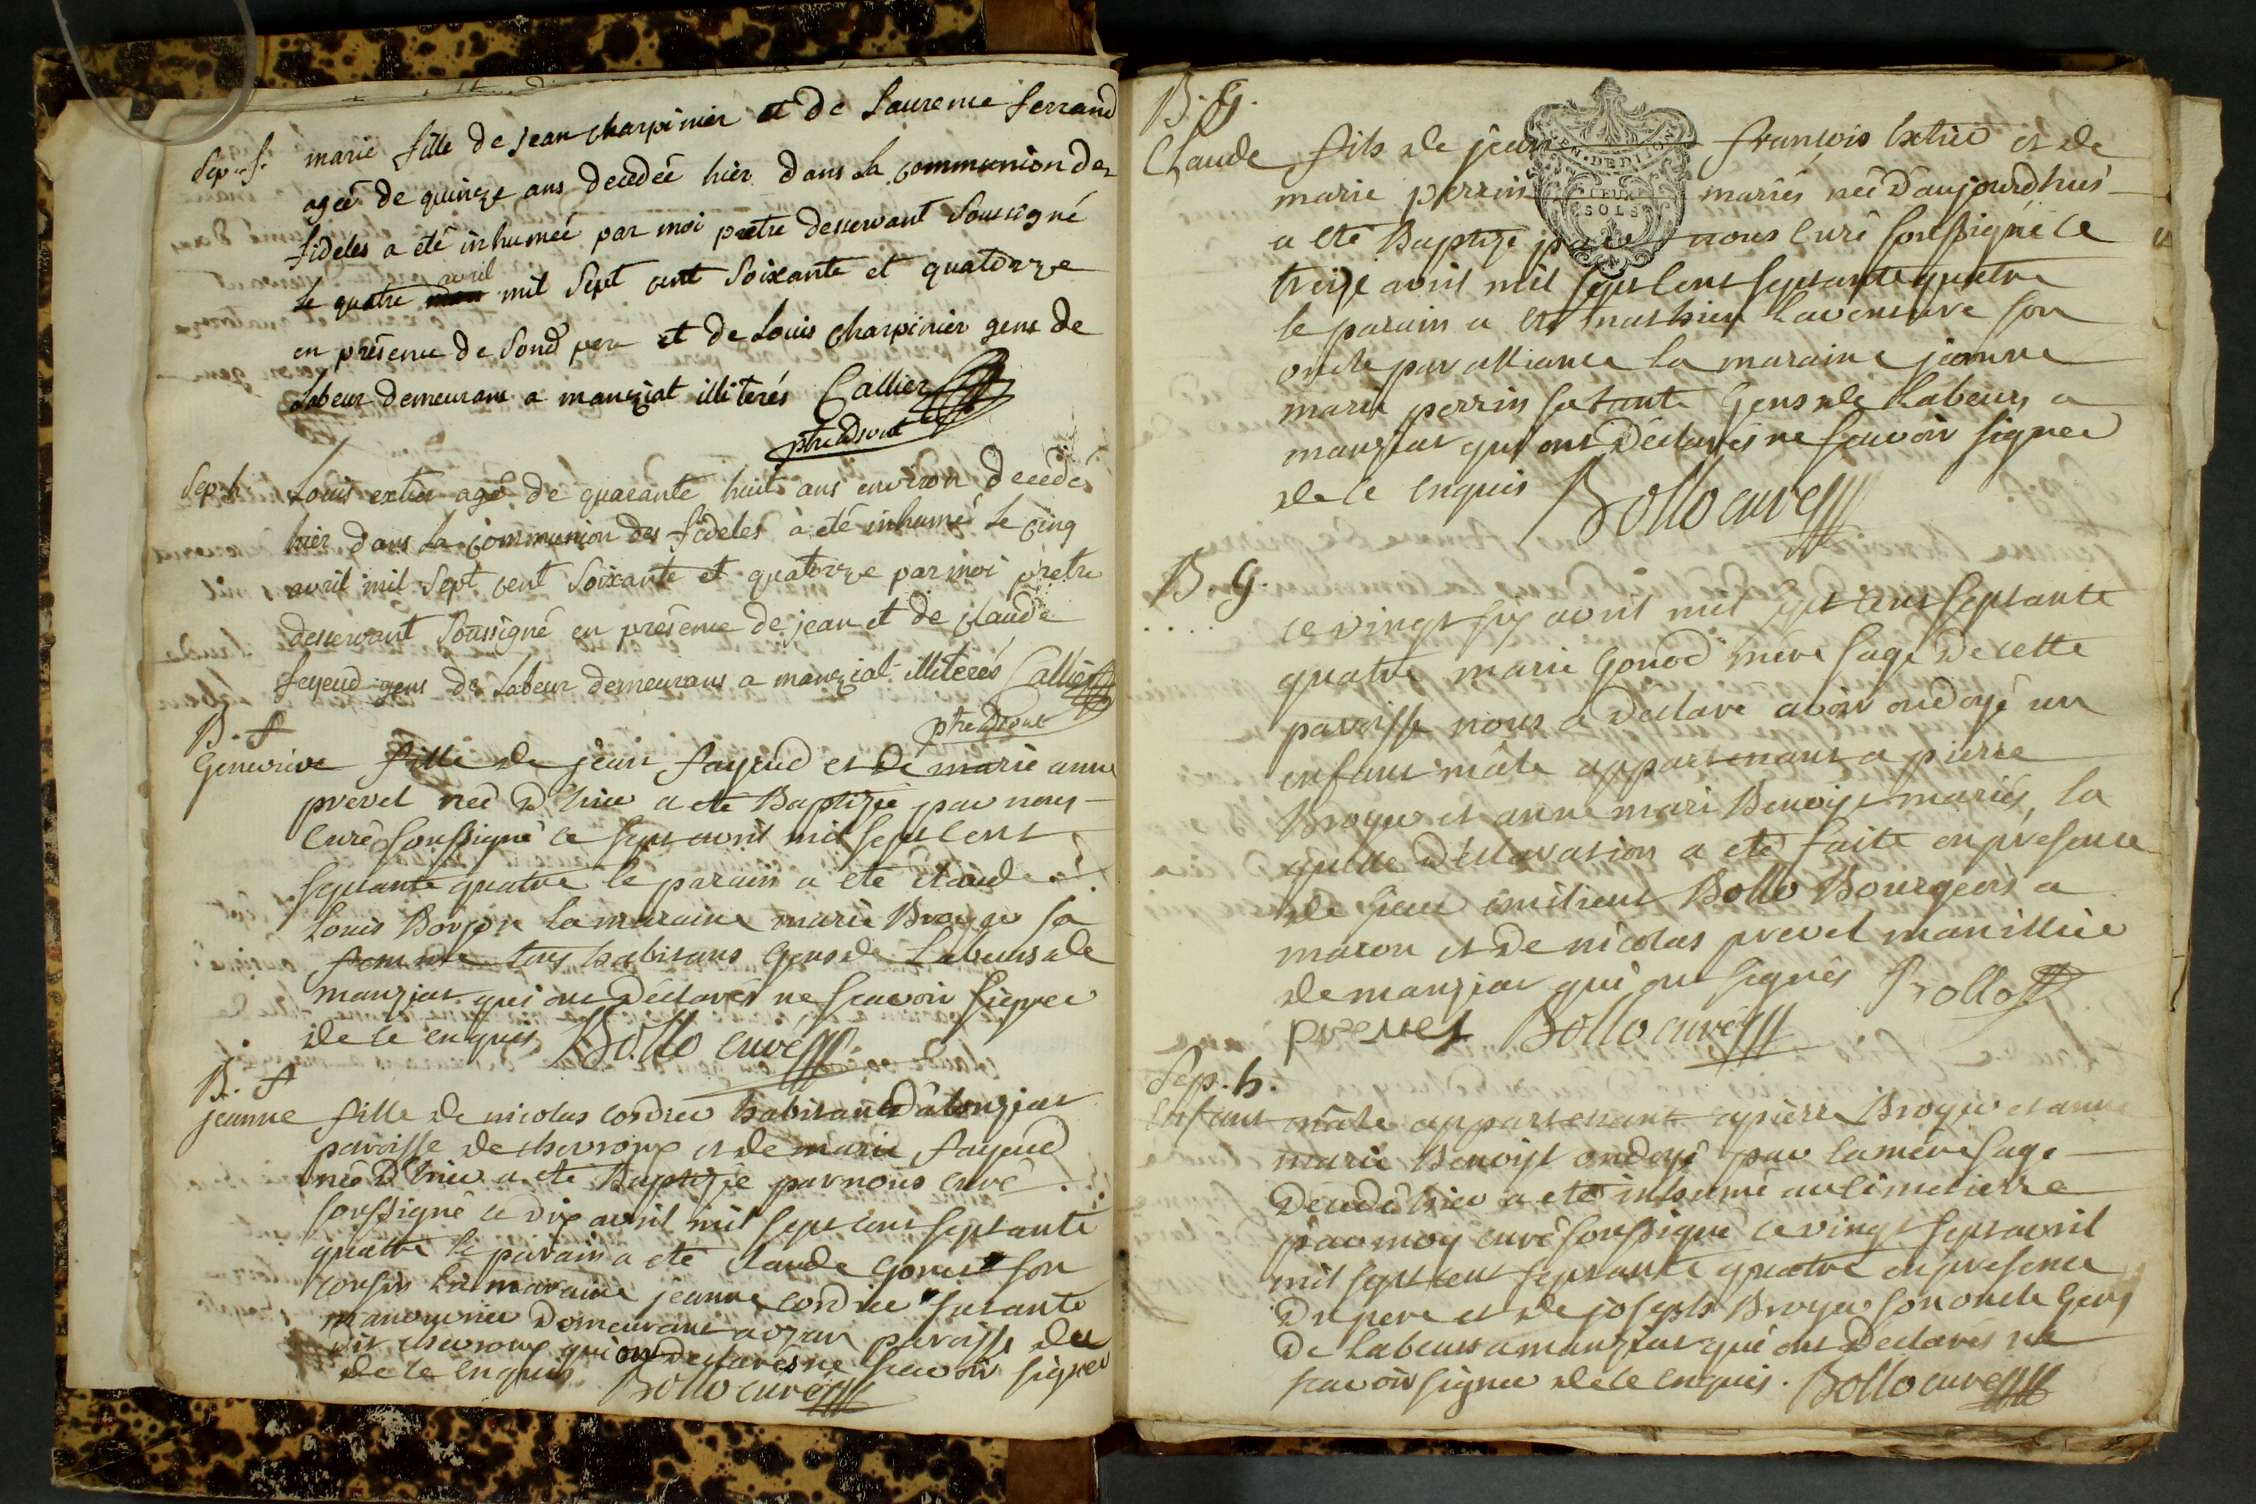 Sep. f. marie fille de jean charpinier et de Laurence ferrand
ageé de quinze ans decedeé hier dans la communion des
fideles a eté inhumeé par moi pretre desservant Soussigné
le quatre avril mil Sept cent Soixante et quatorze
en présence de Sond pere et de Louis charpinier gens de
Labeur demeurans a manziat illiterés Callier
ptre dsvt
Sep. h. Louis extier agé de quarante huit ans environ decedé
hier dans la communion des fideles à eté inhumé le cinq
avril mil Sept cent Soixante et quatorze par moi pretre
desservant Soussigné en présence de jean et de claude
feyeud gens de Labeur demeurans a manziat illiterés Callier
ptre dsvt
B. f
Genevieve fille de jean fayeud et de marie anne
prevel neé d'hier a eté Baptizeé par nous
Curé soussigné le sept avril mil sept cent
septante quatre le parain a eté claude
Louis Borjon la maraine marie Broyer sa
femme tous habitans gens de Labeurs de
manziat qui ont déclarés ne scavoir signer
de ce enquis Bollo curé
B. f
jeanne fille de nicolas cordier habitant
paroisse de chevroux et de marie fayeud
neé d'hier a eté Baptizeé par nous curé
soussigné le dix avril mil sept cent septante
quatre le parain a eté claude son
cousin la maraine jeanne cordier sa tante
manouvrier demeurant a ozan paroisse du
dit chevroux qui ont declarés ne scavoir signer
de ce enquis Bollo curé
B. G.
Claude fils de jean françois Extier et de
marie perrin mariés neé d'aujourdhuÿ
a eté Baptizé par nous Curé soussigné le
treize avril mil sept cent septante quatre
le parain a eté mathieu Laventure son
oncle par alliance la maraine jeanne
marie perrin sa tante Gens de Labeurs a
manziat qui ont déclarés ne scavoir signer
de ce enquis Bollo curé
GEN. DE DIJON
DEUX
SOLS
B. G.
le vingt six avril mil sept cent septante
quatre marie Gonod mére sage de cette
paroisse nous a déclaré avoir ondoyé un
enfant mâle appartenant a pierre
Broyer et anne mari Benoist mariés, la
quelle déclaration a eté faite en présence
de sieur emiliand Bollo Bourgeois a
macon et de nicolas prevel manillier
de manziat qui ont signés Bollo
prevel Bollo curé
Sep. h.
Enfant mâle appartenant a pierre Broyer et anne
marie Benoist ondoyé par la mére sage
decedé hier a eté inhumé au cimetierre
par moy curé soussigné le vingt sept avril
mil sept cent septante quatre en presence
du pere et de joseph Broyer son oncle Gens
de Labeurs a manziat qui ont declarés ne
scavoir signer de ce enquis. Bollo curé